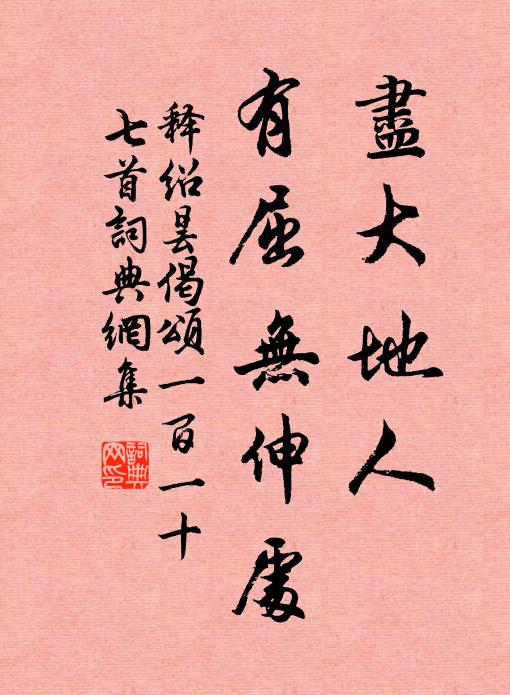 盡大地人
有屈無伸處
释绍昙偈頌一百一十
七首詞典網集
詞典网印